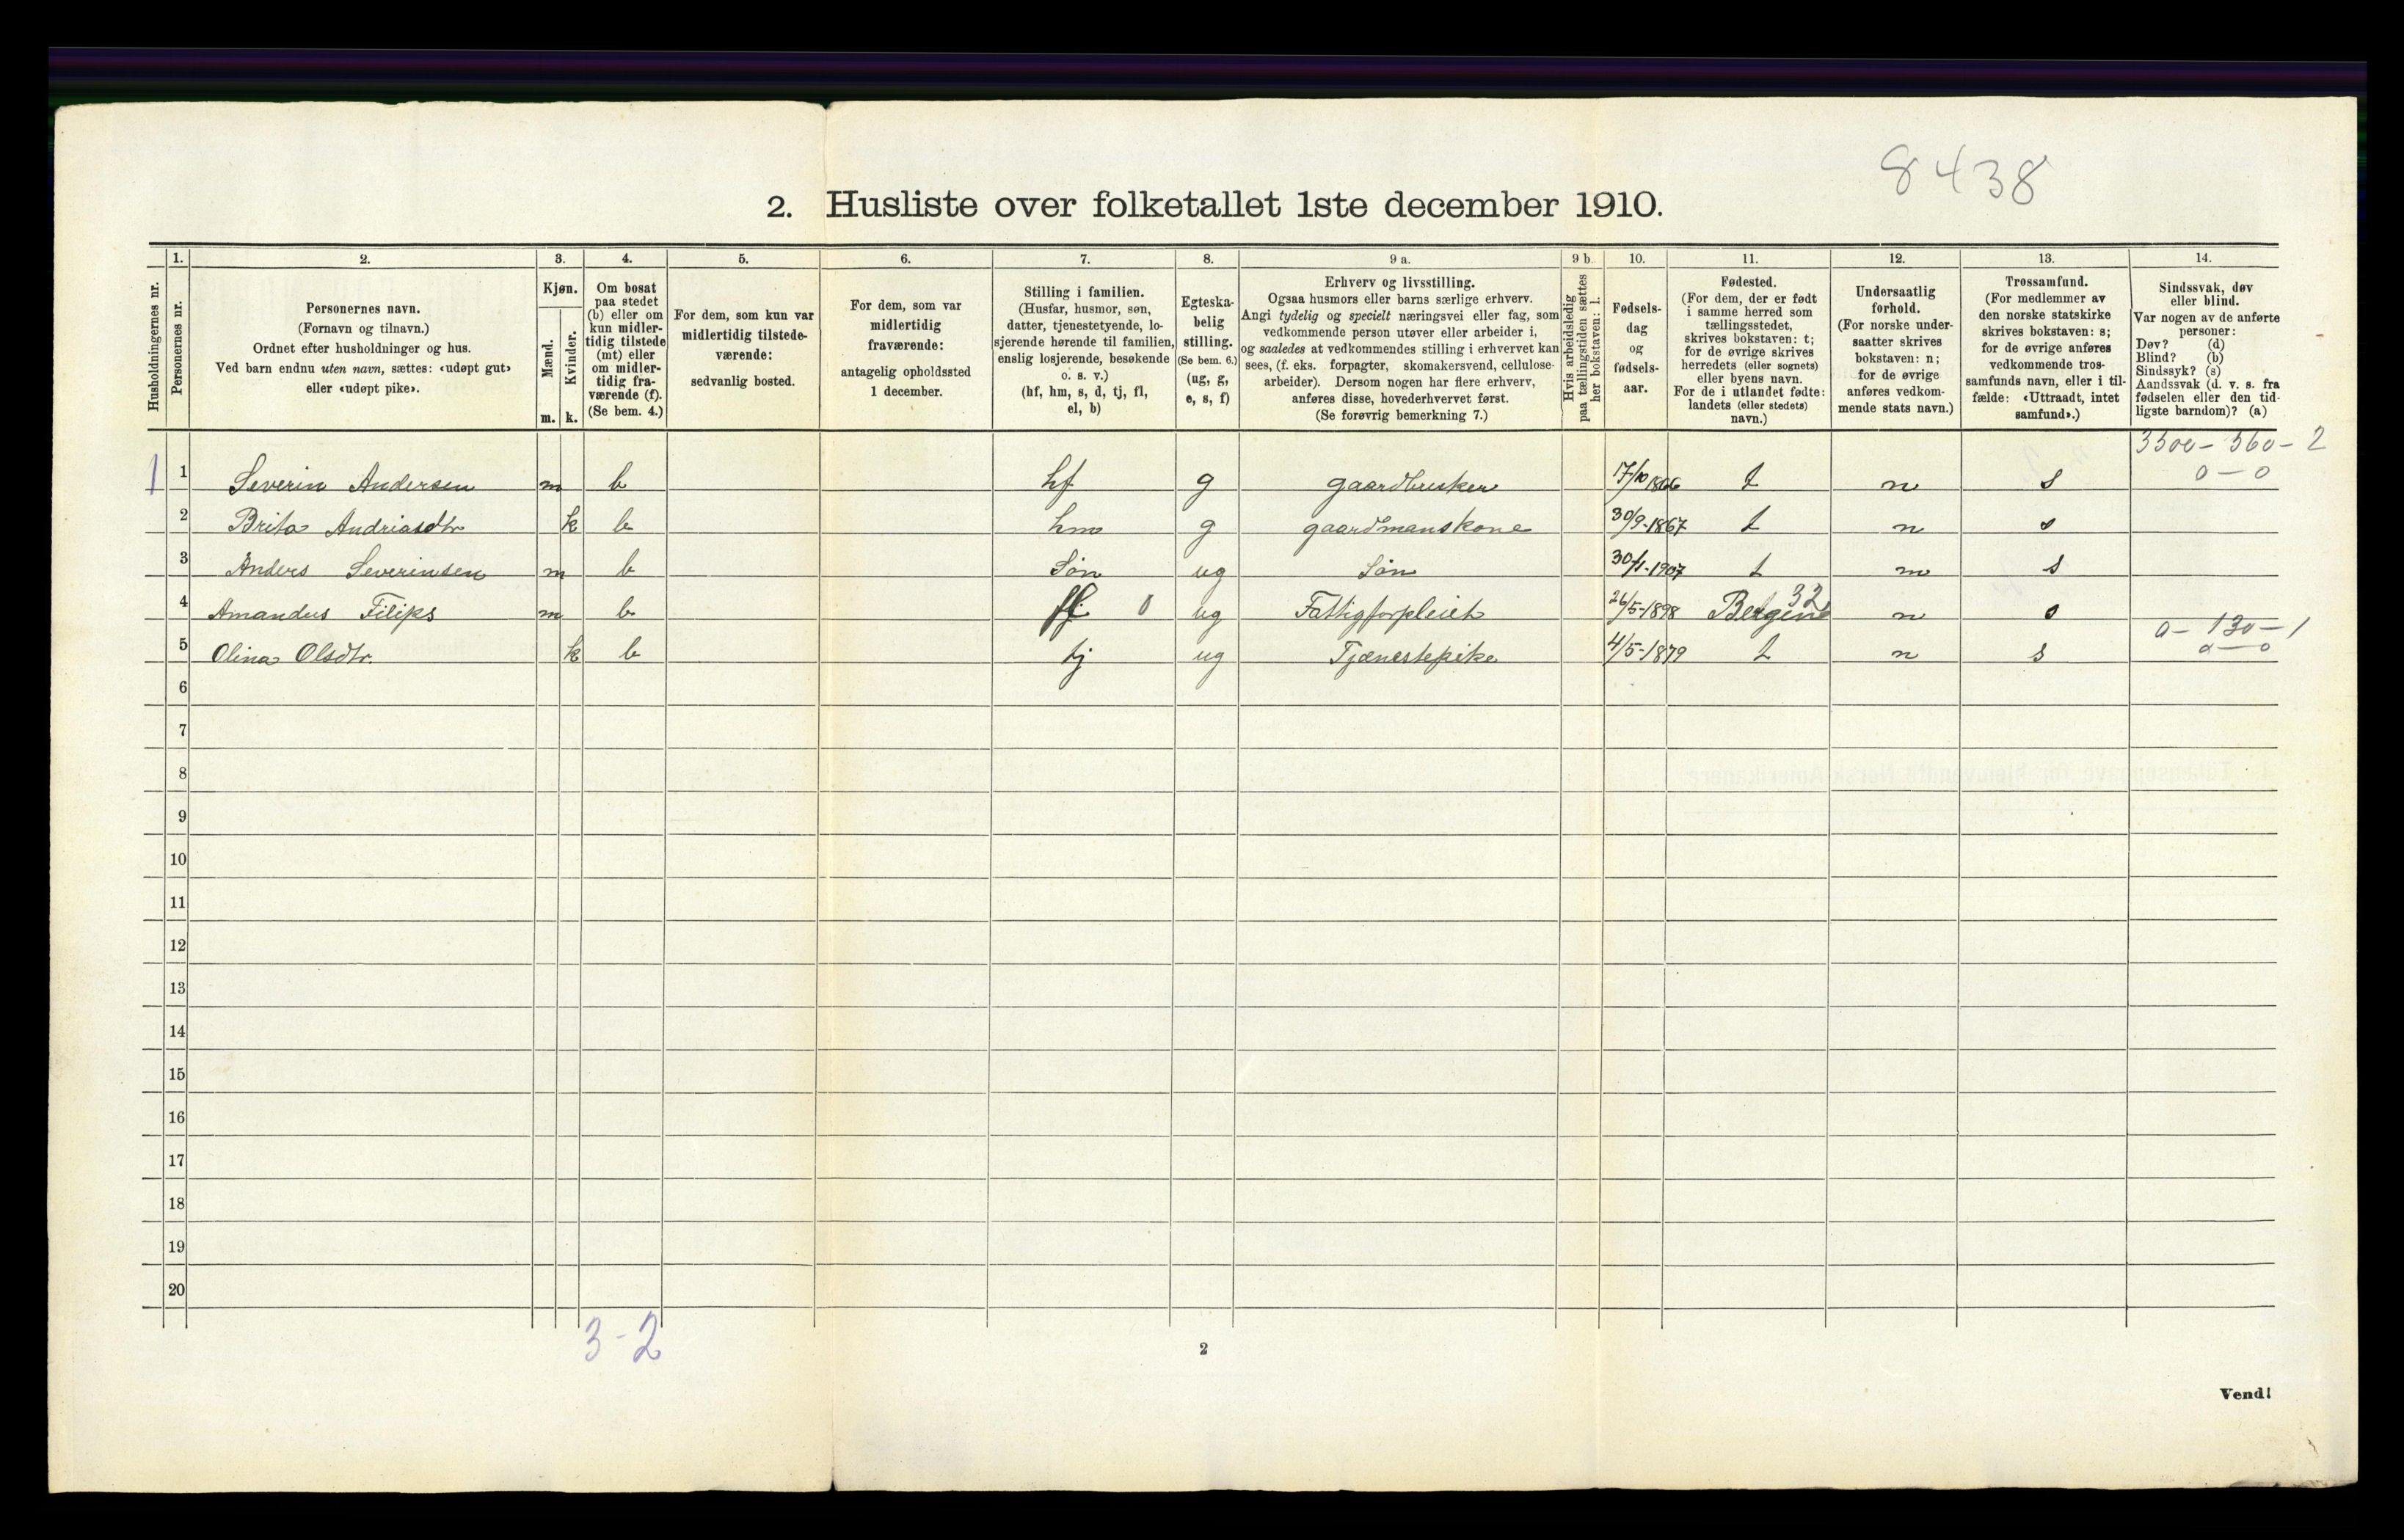 8438
2. Husliste over folketallet 1ste december 1910.
Husholdningernes nr.
1. Personernes nr.
2. Personernes navn.
(Fornavn og tilnavn.)
Ordnet efter husholdninger og hus.
Ved barn endnu uten navn, sættes: «udøpt gut»
eller «udøpt pike».
3. Kjøn.
Mænd. Kvinder.
m. k.
4. Om bosat
paa stedet
(b) eller om
kun midler-
tidig tilstede
(mt) eller
om midler-
tidig fra-
værende (f).
(Se bem. 4.)
5. For dem, som kun var
midlertidig tilstede-
værende:
sedvanlig bosted.
6. For dem, som var
midlertidig
fraværende:
antagelig opholdssted
1 december.
7. Stilling i familien.
(Husfar, husmor, søn,
datter, tjenestetyende, lo-
sjerende hørende til familien,
enslig losjerende, besøkende
o. s. v.)
(hf, hm, s, d, tj, fl,
el, b)
8. Egteska-
belig
stilling.
(Se bem. 6.)
(ug, g,
e, s, f)
9 a. Erhverv og livsstilling.
Ogsaa husmors eller barns særlige erhverv.
Angi tydelig og specielt næringsvei eller fag, som
vedkommende person utøver eller arbeider i,
og saaledes at vedkommendes stilling i erhvervet kan
sees, (f. eks. forpagter, skomakersvend, cellulose-
arbeider). Dersom nogen har flere erhverv,
anføres disse, hovederhvervet først.
(Se forøvrig bemerkning 7.)
9 b. Hvis arbeidsledig
paa tællingstiden sættes
her bokstaven: l.
10. Fødsels-
dag
og
fødsels-
aar.
11. Fødested.
(For dem, der er født
i samme herred som
tællingsstedet,
skrives bokstaven: t;
for de øvrige skrives
herredets (eller sognets)
eller byens navn.
For de i utlandet fødte:
landets (eller stedets)
navn.)
12. Undersaatlig
forhold.
(For norske under-
saatter skrives
bokstaven: n;
for de øvrige
anføres vedkom-
mende stats navn.)
13. Trossamfund.
(For medlemmer av
den norske statskirke
skrives bokstaven: s;
for de øvrige anføres
vedkommende tros-
samfunds navn, eller i til-
fælde: «Uttraadt, intet
samfund».)
14. Sindssvak, døv
eller blind.
Var nogen av de anførte
personer:
Døv? (d)
Blind? (b)
Sindssyk? (s)
Aandssvak (d. v. s. fra
fødselen eller den tid-
ligste barndom)? (a)
3500 - 560 - 2
1 1 Severin Andersen m b hf g gaardbruker 17/10 1866 t n s 0 - 0
2 Brita Andriasdtr k b hm g gaardmanskone 30/9-1867 t n s
3 Anders Severinsen m b Søn ug Søn 30/1-1907 t n s
4 Amandus Filips m b fl 0 ug Fattigforpleiet 26/5-1898 Bergen 32 n s
0 - 130 - 1
5 Olina Olsdtr. k b tj ug Tjenestepike 4/5-1879 t n s 0 - 0
6
7
8
9
10
11
12
13
14
15
16
17
18
19
20
3-2
2
Vend!